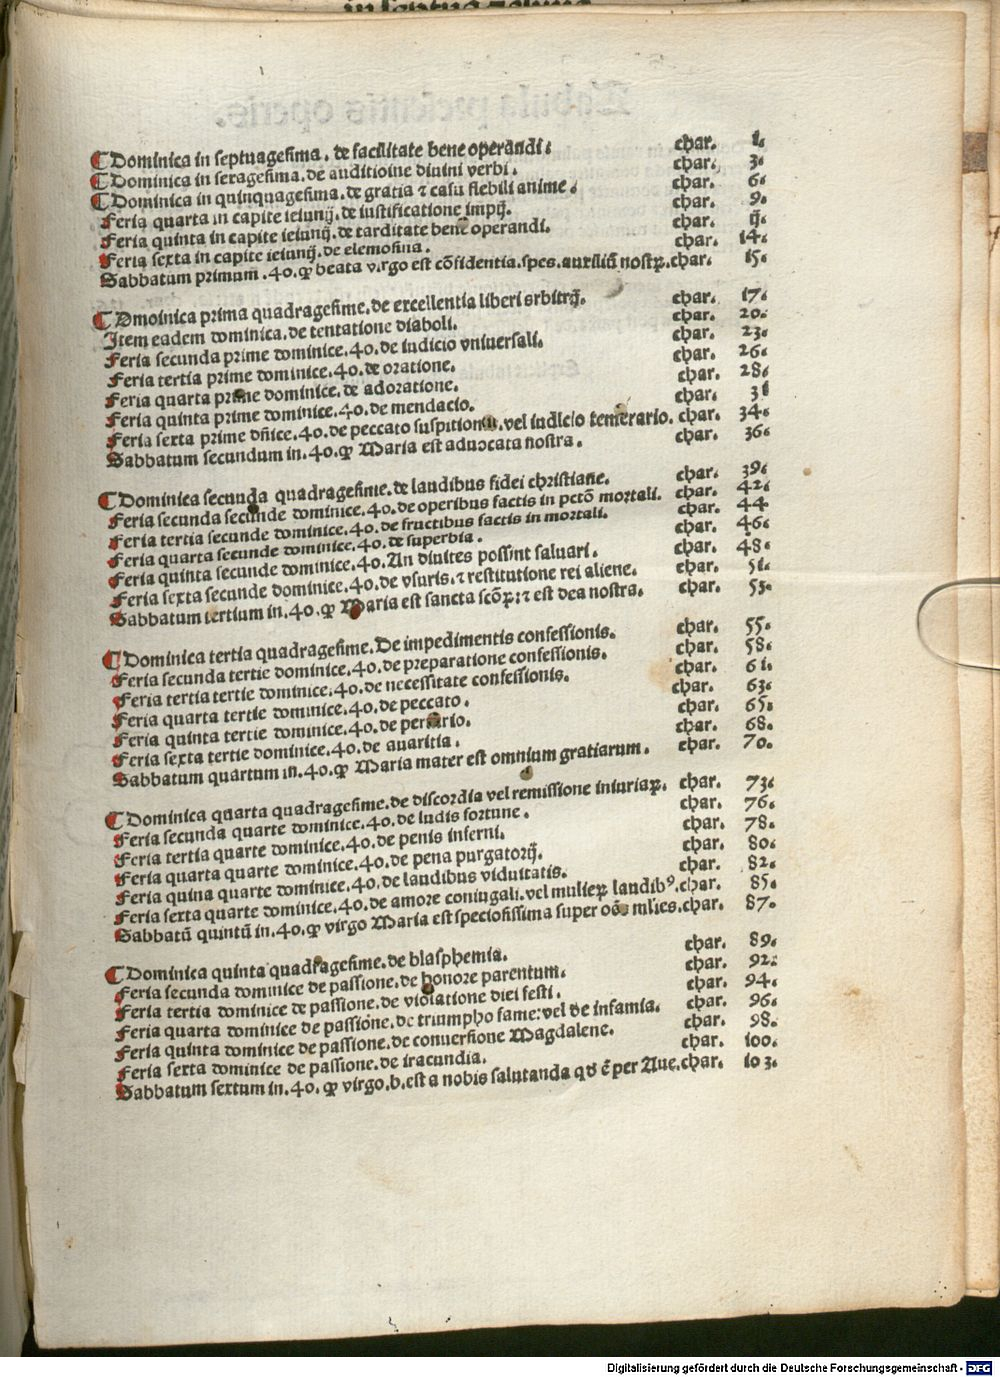 ¶ Dominica in septuagesima. de facilitate bene operandi. char. 1.
¶ Dominica in sexagesima. de auditioine diuini verbi. char. 3.
¶ Dominica in quinquagesima. de gratia ⁊ casu flebili anime. char. 6.
Feria quarta in capite ieiunij. de iustificatione impij. char. 9.
Feria quinta in capite ieiunij. de tarditate bene operandi. char. ij.
Feria sexta in capite ieiunij. de elemosina. char. 14.
Sabbatum primum .40. ꝙ beata virgo est cõfidentia. spes. auxiliũ nostꝝ. char. 15.
¶ Dmoinica prima quadragesime. de excellentia liberi arbitrij. char. 17.
Item eadem dominica. de tentatione diaboli. char. 20.
Feria secunda prime dominice. 40. de iudicio vniuersali. char. 23.
Feria tertia prime dominice. 40. de oratione. char. 26.
Feria quarta prime dominice. de adoratione. char. 28.
Feria quinta prime dominice. 40. de mendacio. char. 31
Feria sexta prime dñice. 40. de peccato suspitionis. vel iudicio temerario. char. 34.
Sabbatum secundum in. 40. ꝙ Maria est aduocata nostra. char. 36.
¶ Dominica secunda quadragesime. de laudibus fidei christiane. char. 39.
Feria secunda secunde dominice. 40. de operibus factis in pctõ mortali. char. 42.
Feria tertia secunde dominice. 40. de fructibus factis in mortali. char. 44
Feria quarta secunde dominice. 40. de superbia. char. 46.
Feria quinta secunde dominice. 40. An diuites possint saluari. char. 48.
Feria sexta secunde dominice. 40. de vsuris. ⁊ restitutione rei aliene. char. 51.
Sabbatum tertium in. 40. ꝙ Maria est sancta scõꝝ: ⁊ est dea nostra. char. 53.
¶ Dominica tertia quadragesime. De impedimentis confessionis. char. 55.
Feria secunda tertie dominice. 40. de preparatione confessionis. char. 58.
Feria tertia tertie dominice. 40. de necessitate confessionis. char. 61.
Feria quarta tertie dominice. 40. de peccato. char. 63.
Feria quinta tertie dominice. 40. de char. 65.
Feria sexta tertie dominice. 40. de auaritia. char. 68.
Sabbatum quartum in. 40. ꝙ Maria mater est omnium gratiarum. char. 70.
¶ Dominica quarta quadragesime. de discordia vel remissione iniuriaꝝ. char. 73.
Feria secunda quarte dominice. 40. de ludis fortune. char. 76.
Feria tertia quarte dominice. 40. de penis inferni. char. 78.
Feria quarta quarte dominice. 40. de pena purgatorij. char. 80.
Feria quina quarte dominice. 40. de laudibus viduitatis. char. 82.
Feria sexta quarte dominice. 40. de amore coniugali. vel mulieꝝ laudibꝰ. char. 85.
Sabbatũ quintũ in. 40. ꝙ virgo Maria est speciosissima super oẽs mlies. char. 87.
¶ Dominica quinta quadragesime. de blasphemia. char. 89.
Feria secunda dominice de passione. de honore parentum. char. 92.
Feria tertia dominice de passione. de violatione diei festi. char. 94.
Feria quarta dominice de passione. de triumpho fame: vel de infamia. char. 96.
Feria quinta dominice de passione. de conuersione Magdalene. char. 98.
Feria sexta dominice de passione. de iracundia. char. 100.
Sabbatum sextum in. 40. ꝙ virgo. b. est a nobis salutanda qd ẽ per Aue. char. 103.
Digitalisierung gefördert durch die Deutsche Forschungsgemeinschaft - DFG